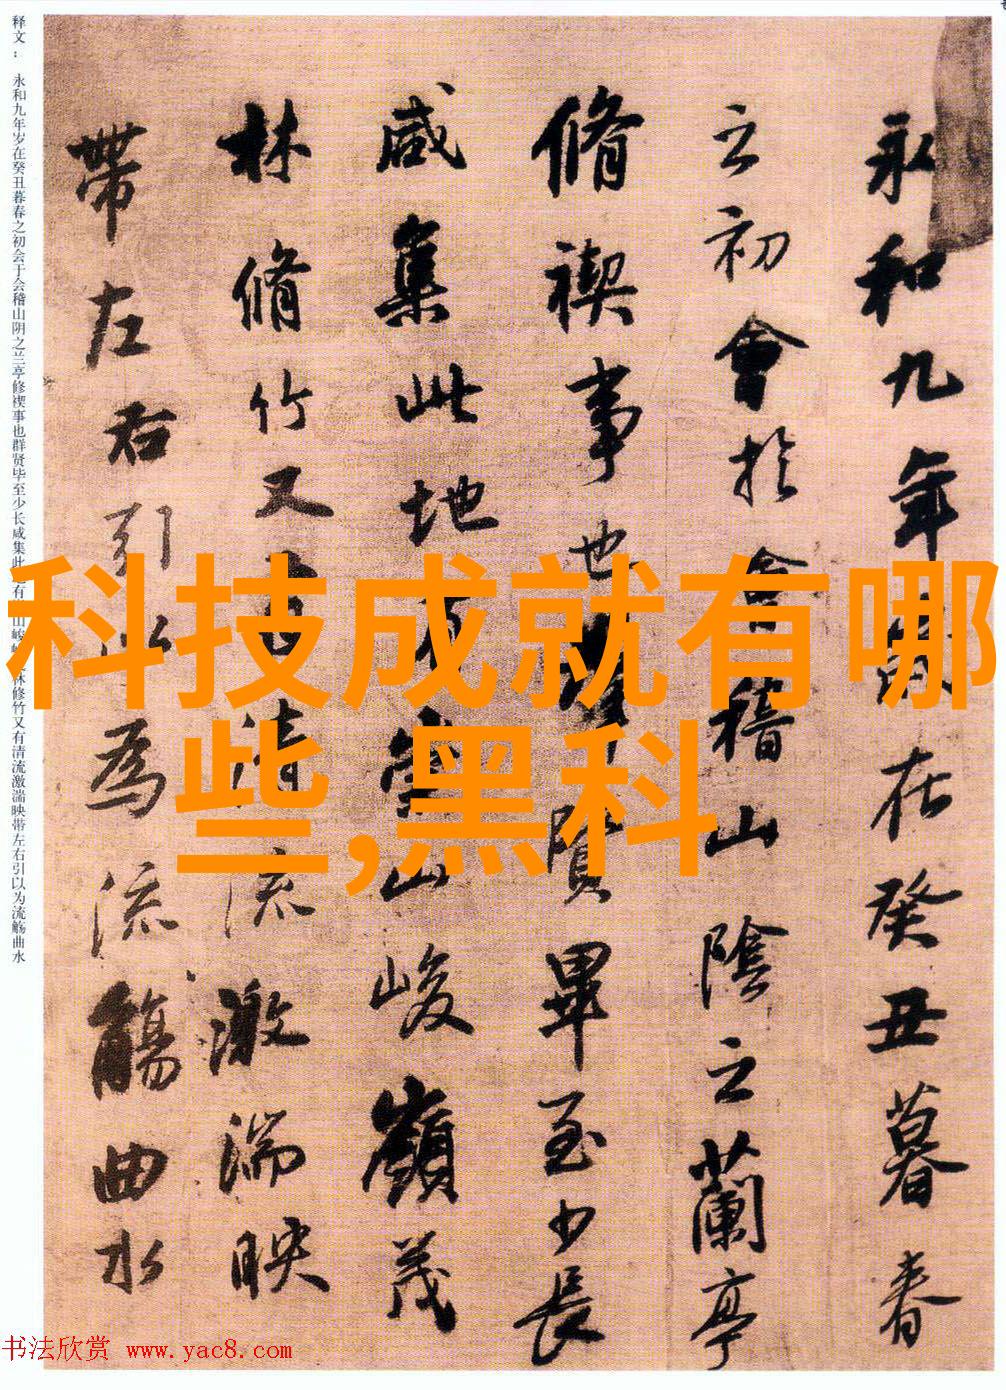 永和九年在癸丑暮春
之初會於會稽山陰之蘭亭
脩禊事也賢畢至少長
咸集此地有崇山峻嶺茂
林脩竹又有清流激湍映
帶左右引以為流觴曲水
释文： 永和九年岁在癸丑暮春之初会于会稽山阴之兰亭修禊事也群贤毕至少长咸集此有山峻林修竹又有清流激湍映带左右引以为流觞曲水
科技成就有哪
些,黑科
书法欣赏 www.yac8.com